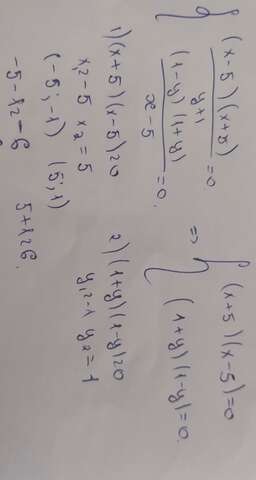 { (x-5)(x+5) / y+1 = 0.
(1-y)(1+y) / x-5 = 0.
=> { (x+5)(x-5)=0
(1+y)(1-y)=0.
1) (x+5)(x-5)=0
x₁=-5 x₂=5
2) (1+y)(1-y)=0
y₁=-1 y₂=1
(-5; -1) (5; 1)
-5-1=-6 5+1=6.